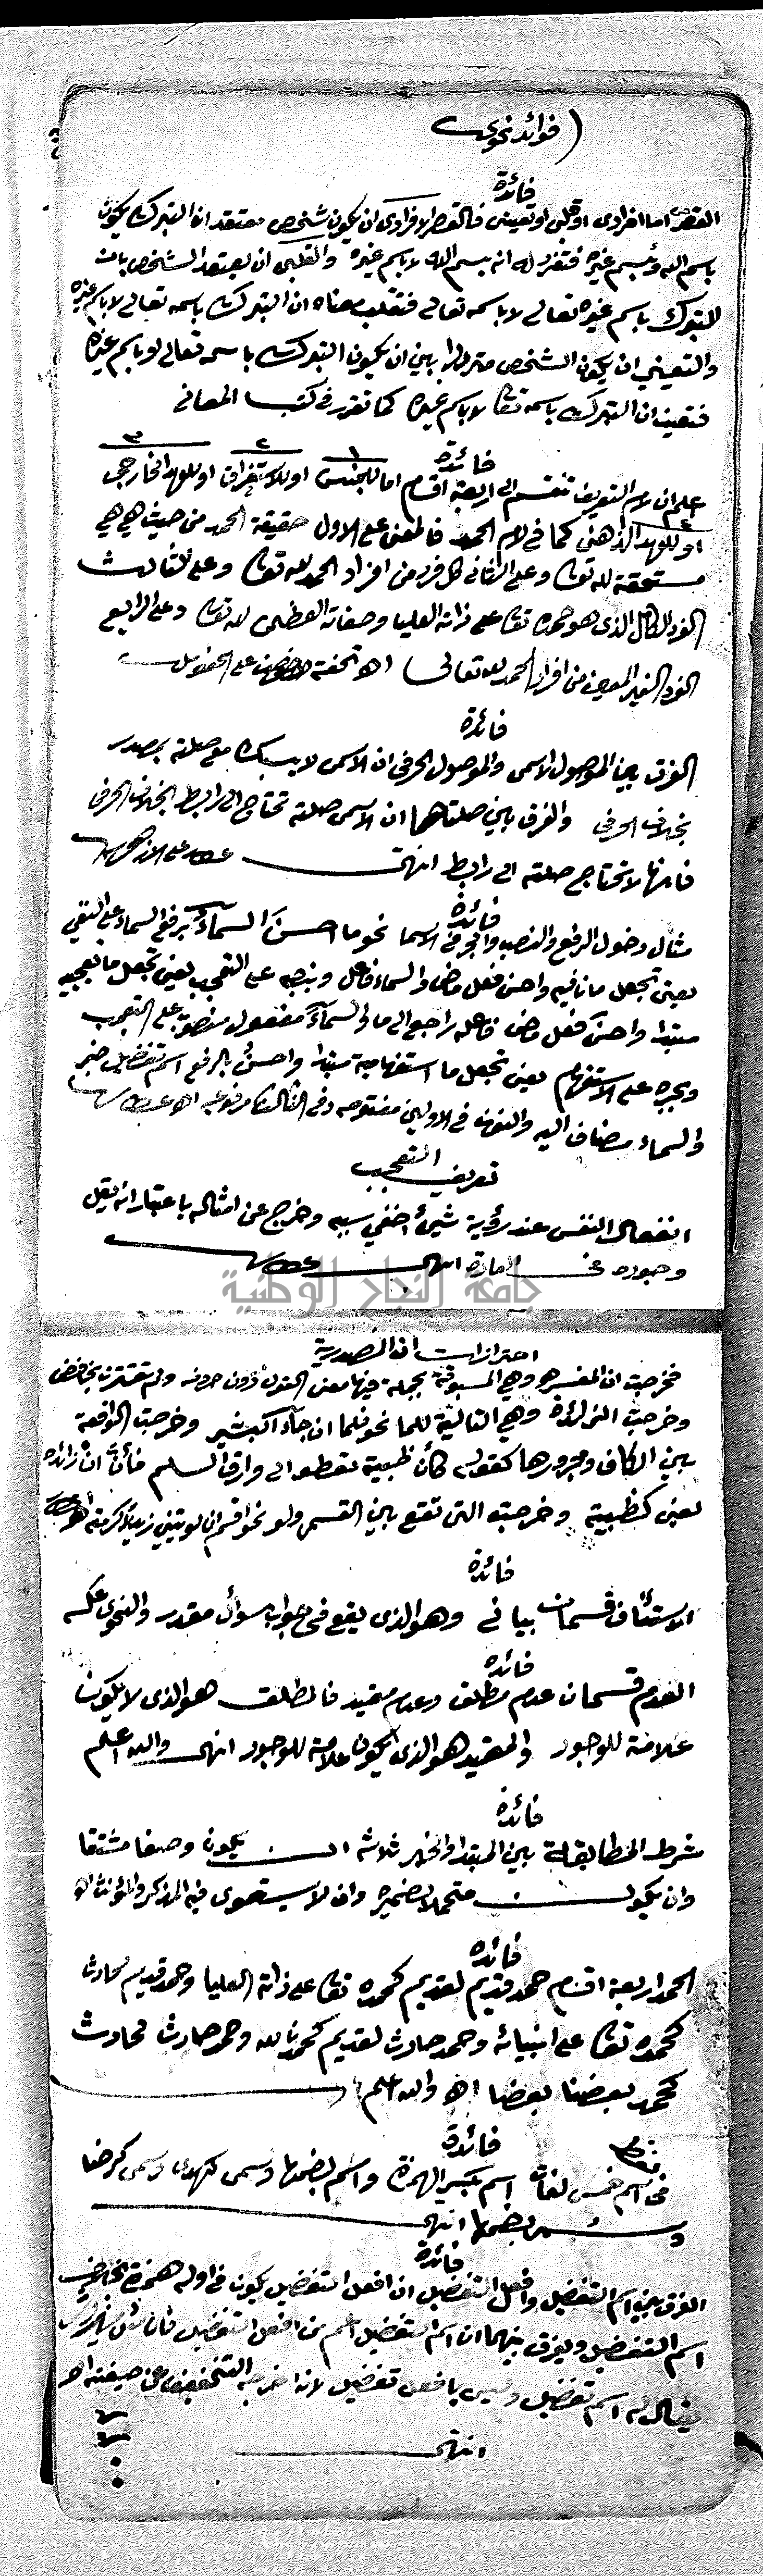 فوائد نحوى
فائدة
القصر اما افرادى او قلبى او تعيينى فالقصر الافرادى ان يكون شخص معتقد ان التبرك يكون
باسم الله وبسم غيره فتفرد له انه بسم الله لا باسم غيره والقلبى ان يعتقد الشخص بان
التبرك باسم غيره تعالى لا باسمه تعالى فتقلب معناه ان التبرك باسمه تعالى لا باسم غيره
والتعيينى ان يكون الشخص مترددا بين ان يكون التبرك باسمه تعالى او باسم غيره
فتعين ان التبرك باسمه تعا لا باسم غيره كما تقرر فى كتب المعانى
فائدة
١ ٢ ٣
اعلم ان لام التعريف تنقسم الى اربعة اقسام اما للجنس او للاستغراق او للعهد الخارجى
او للعهد الذهنى كما فى لام الحمد فالمعنى على الاول حقيقة الحمد من حيث هى هى
مستحقة لله تعا وعلى الثانى كل فرد من افراد الحمد لله تعا وعلى الثالث
الفرد الكامل الذى هو حمده تعا على ذاته العليا وصفاته العظمى لله تعا وعلى الرابع
الفرد الغير المعين من افراد الحمد لله تعالى اهـ تحفة
فائدة
الفرق بين الموصول الاسمى والموصول الحرفى ان الاسمى لا يسبك مع صلته بمصدر
بخلاف الحرفى والفرق بين صلتاهما ان الاسمى صلته تحتاج الى رابط بخلاف الحرفى
فانها لا تحتاج صلته الى رابط انتهى
فائدة
مثال دخول الرفع والنصب والجر فى الاسما نحو ما احسن السماء برفع السماء على النفى
يعنى تجعل ما نافيه واحسن فعل ماض والسماء فاعل وبنصبه على التعجب يعنى تجعل ما تعجبيه
مبتدا واحسن فعل ماض فاعله راجع الى ما والسماء مفعول منصوب على التعجب
وبجره على الاستفهام يعنى تجعل ما استفهامية مبتدا واحسن بالرفع اسم تفضيل خبر
والسماء مضاف اليه والنون فى الاولين مفتوحه وفى الثالث مرفوعه اهـ
تعريف التعجب
انفعال النفس عند رؤية شيئ اخفي سببه وخرج عن امثاله باعتبار انه يقل
وجوده فى العادة انتهى
جامعة النجاح الوطنية
احترازات ان المصدرية
فخرجت ان المفسره وهي المسبوقة بجملة فيها معنى القول دون حروفه ولم تقترن بخافض
وخرجت الزائدة وهي التالية للما نحو فلما ان جاء البشير وخرجت الواقعة
بين الكاف ومجرورها كقوله كأن ظبية تعطو الى وارق السلم فأن ان زائده
يعنى كظبية وخرجت التى تقع بين القسم ولو نحو اقسم ان لو يتينى زيد لأكرمته اهـ
فائدة
الاستئناف قسمان بيانى وهو الذى يقع فى جواب سوأل مقدر والنحوى عكسه
فائده
العدم قسمان عدم مطلق وعدم مقيد فالمطلق هو الذى لا يكون
علامة للوجود والمقيد هو الذى يكون علامة للوجود انتهى والله اعلم
فائدة
شرط المطابقة بين المبتدا والخبر ثلاثه ان يكون وصفا مشتقا
وان يكون متحملا لضميره وان لا يستوى فيه المذكر والمؤنث اهـ
فائده
الحمد اربعة اقسام حمد قديم لقديم كحمده تعا على ذاته العليا وحمد قديم لحادث
كحمده تعا على انبيائه وحمد حادث لقديم كحمدنا لله وحمد حادث لحادث
كحمد بعضنا بعضا اهـ والله اعلم
فائدة
فى اسم خمس لغات اسم بكسر الهمزة واسم بضمها وسمى كهدى وسمى كرضا
وسم بضمها انتهى
فائدة
الفرق بين اسم التفضيل وافعل التفضيل ان افعل التفضيل يكون فى اوله همزة بخلاف
اسم التفضيل ويفرق بينهما ان اسم التفضيل اعم من افعل التفضيل فان مثل خير وشر
يقال له اسم تفضيل وليس بافعل تفضيل لانه اخرجه التخفيف عن صيغته اهـ
انتهى